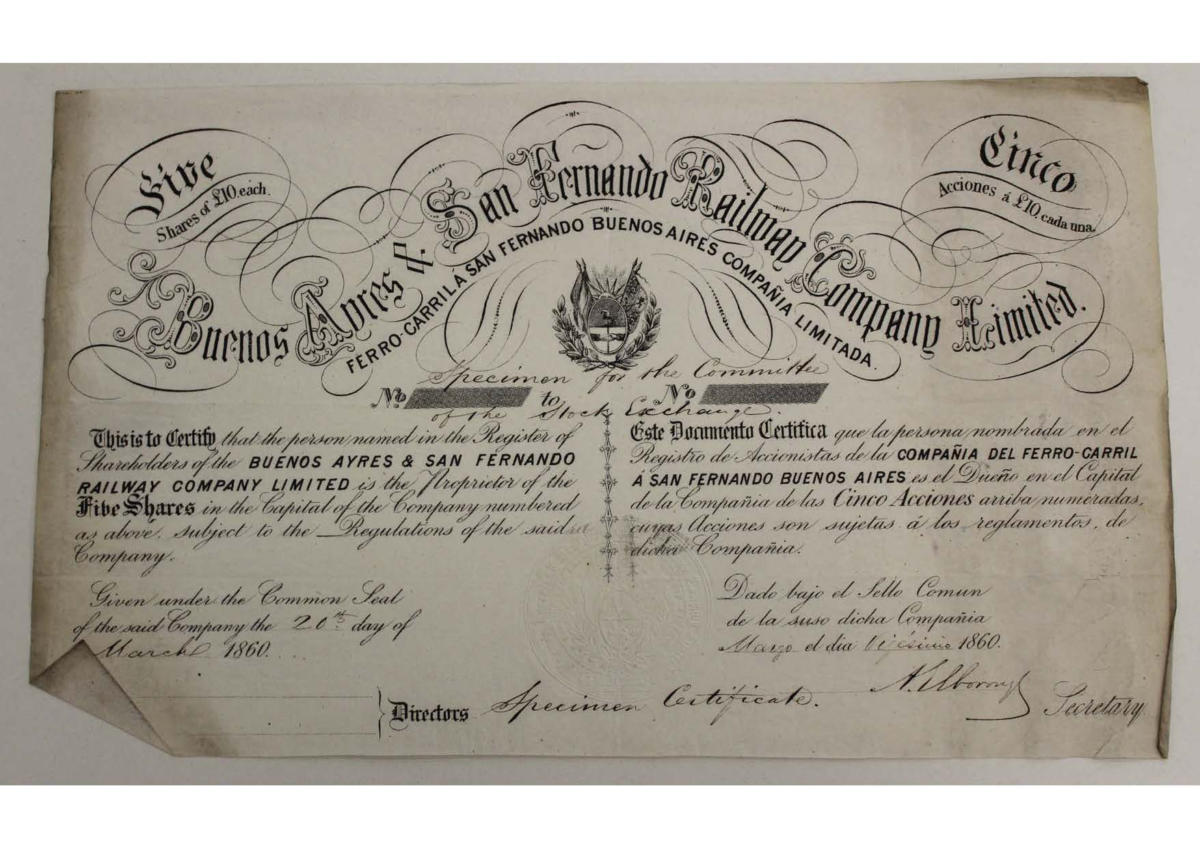 Five
Shares of £10, each.
Cinco
Acciones á £10, cada una.
Buenos Ayres & San Fernando Railway Company Limited.
FERRO-CARRIL Á SAN FERNANDO BUENOS AIRES COMPAÑIA LIMITADA.
Specimen for the Committee
No. to No
of the Stock Exchange.
This is to Certify that the person named in the Register of
Shareholders of the BUENOS AYRES & SAN FERNANDO
RAILWAY COMPANY LIMITED is the Proprietor of the
Five Shares in the Capital of the Company numbered
as above, subject to the Regulations of the said
Company.
Given under the Common Seal
of the said Company the 20th day of
March 1860.
Este Documento Certifica que la persona nombrada en el
Registro de Accionistas de la COMPAÑIA DEL FERRO-CARRIL
Á SAN FERNANDO BUENOS AIRES es el Dueño en el Capital
de la Compañia de las Cinco Acciones arriba numeradas,
cuyas Acciones son sujetas á los reglamentos, de
dicha Compañia.
Dado bajo el Sello Comun
de la suso dicha Compañia
Marzo el dia 1860.
Directors Specimen Certificate.
Secretary